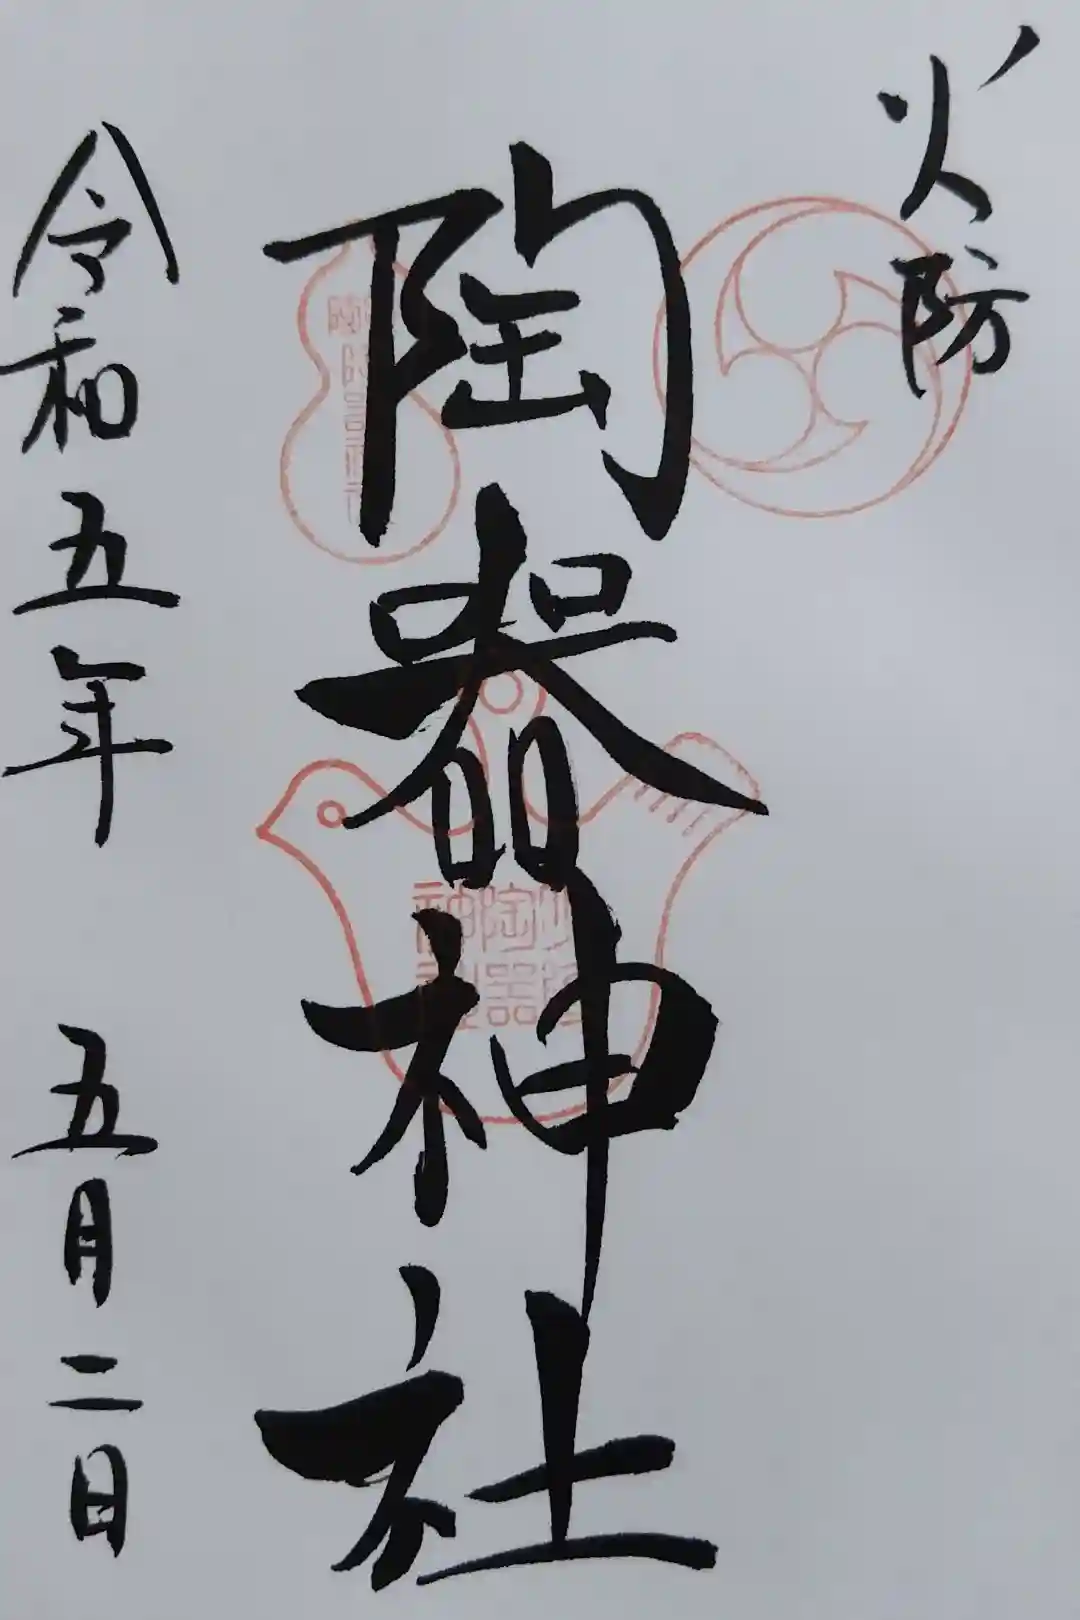 火防
陶器神社
令和五年 五月二日
陶器神社